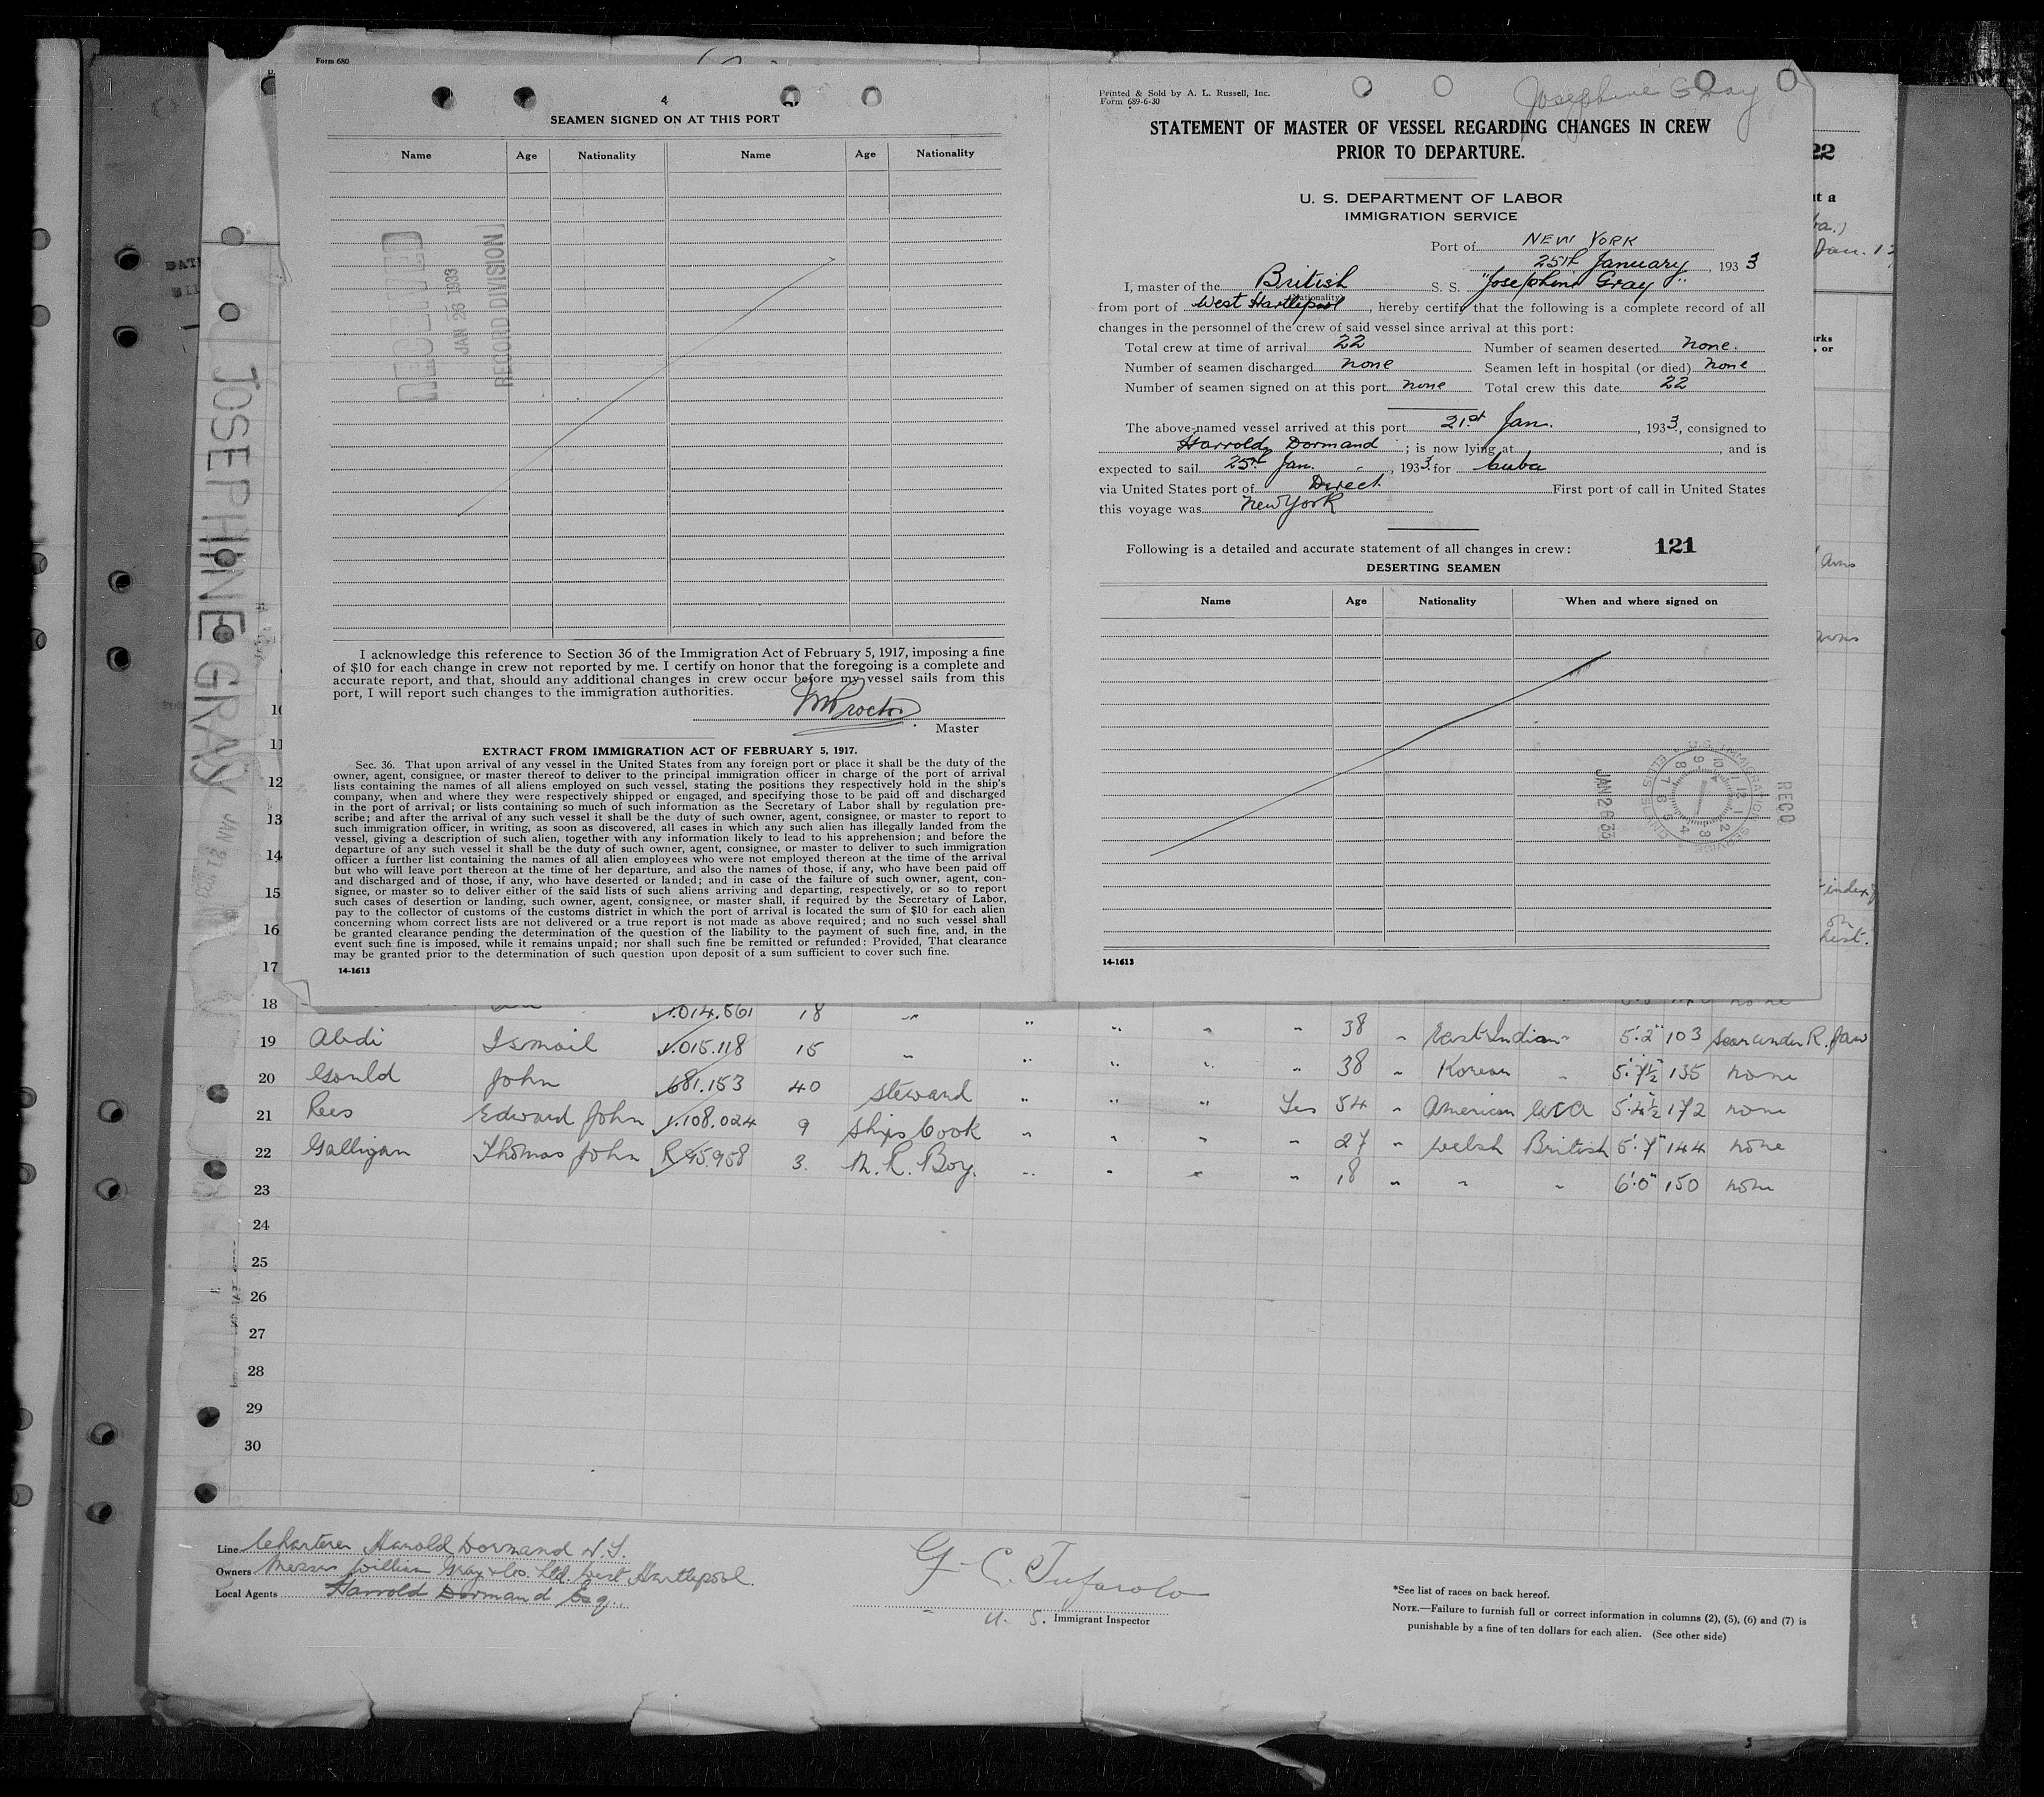 Form 680
4
SEAMEN SIGNED ON AT THIS PORT
Name Age Nationality Name Age Nationality
RECEIVED
JAN 26 1933
RECORD DIVISION
I acknowledge this reference to Section 36 of the Immigration Act of February 5, 1917, imposing a fine
of $10 for each change in crew not reported by me. I certify on honor that the foregoing is a complete and
accurate report, and that, should any additional changes in crew occur before my vessel sails from this
port, I will report such changes to the immigration authorities.
Proctor
Master
EXTRACT FROM IMMIGRATION ACT OF FEBRUARY 5, 1917.
Sec. 36. That upon arrival of any vessel in the United States from any foreign port or place it shall be the duty of the
owner, agent, consignee, or master thereof to deliver to the principal immigration officer in charge of the port of arrival
lists containing the names of all aliens employed on such vessel, stating the positions they respectively hold in the ship's
company, when and where they were respectively shipped or engaged, and specifying those to be paid off and discharged
in the port of arrival; or lists containing so much of such information as the Secretary of Labor shall by regulation pre-
scribe; and after the arrival of any such vessel it shall be the duty of such owner, agent, consignee, or master to report to
such immigration officer, in writing, as soon as discovered, all cases in which any such alien has illegally landed from the
vessel, giving a description of such alien, together with any information likely to lead to his apprehension; and before the
departure of any such vessel it shall be the duty of such owner, agent, consignee, or master to deliver to such immigration
officer a further list containing the names of all alien employees who were not employed thereon at the time of the arrival
but who will leave port thereon at the time of her departure, and also the names of those, if any, who have been paid off
and discharged and of those, if any, who have deserted or landed; and in case of the failure of such owner, agent, con-
signee, or master so to deliver either of the said lists of such aliens arriving and departing, respectively, or so to report
such cases of desertion or landing, such owner, agent, consignee, or master shall, if required by the Secretary of Labor,
pay to the collector of customs of the customs district in which the port of arrival is located the sum of $10 for each alien
concerning whom correct lists are not delivered or a true report is not made as above required; and no such vessel shall
be granted clearance pending the determination of the question of the liability to the payment of such fine, and, in the
event such fine is imposed, while it remains unpaid; nor shall such fine be remitted or refunded: Provided, That clearance
may be granted prior to the determination of such question upon deposit of a sum sufficient to cover such fine.
14-1613
Josephine Gray
Printed & Sold by A. L. Russell, Inc.
Form 689-6-30
STATEMENT OF MASTER OF VESSEL REGARDING CHANGES IN CREW
PRIOR TO DEPARTURE.
U. S. DEPARTMENT OF LABOR
IMMIGRATION SERVICE
Port of NEW YORK
25th January, 1933
I, master of the British S. S. "Josephine Gray"
(Nationality)
from port of West Hartlepool, hereby certify that the following is a complete record of all
changes in the personnel of the crew of said vessel since arrival at this port:
Total crew at time of arrival 22 Number of seamen deserted none.
Number of seamen discharged none Seamen left in hospital (or died) none
Number of seamen signed on at this port none Total crew this date 22
The above-named vessel arrived at this port 21st Jan., 1933, consigned to
Harrold Dormand; is now lying at , and is
expected to sail 25th Jan., 1933 for Cuba
via United States port of Direct. First port of call in United States
this voyage was New York
Following is a detailed and accurate statement of all changes in crew: 121
DESERTING SEAMEN
Name Age Nationality When and where signed on
U. S. IMMIGRATION SERVICE ELLIS ISLAND
JAN 26 33
RECD
14-1613
JOSEPHINE GRAY
JAN 21 1933
22
11
12
13
14
15
16
17
18 1.014.561 18 " " " " " 38 " East Indian " 5'.2" 103 Scar under R. Jaw
19 Abdi Ismail 1.015.118 15 " " " " " 38 " Korean " 5'.7½ 135 none
20 Gould John 681.153 40 Steward " " " Yes 54 " American USA 5'.4½ 172 none
21 Rees Edward John 1.108.024 9 Ships Cook " " " " 27 " Welsh British 5'.7" 144 none
22 Galligan Thomas John R 95.958 3. M. R. Boy. " " " " 18 " " " 6'.0" 150 none
23
24
25
26
27
28
29
30
Line Charterer Harold Dormand N.Y.
Owners Messrs William Gray & Co. Ltd. West Hartlepool.
Local Agents Harrold Dormand Esq.
G. C. Tufarolo
U. S. Immigrant Inspector
*See list of races on back hereof.
NOTE.—Failure to furnish full or correct information in columns (2), (5), (6) and (7) is
punishable by a fine of ten dollars for each alien. (See other side)